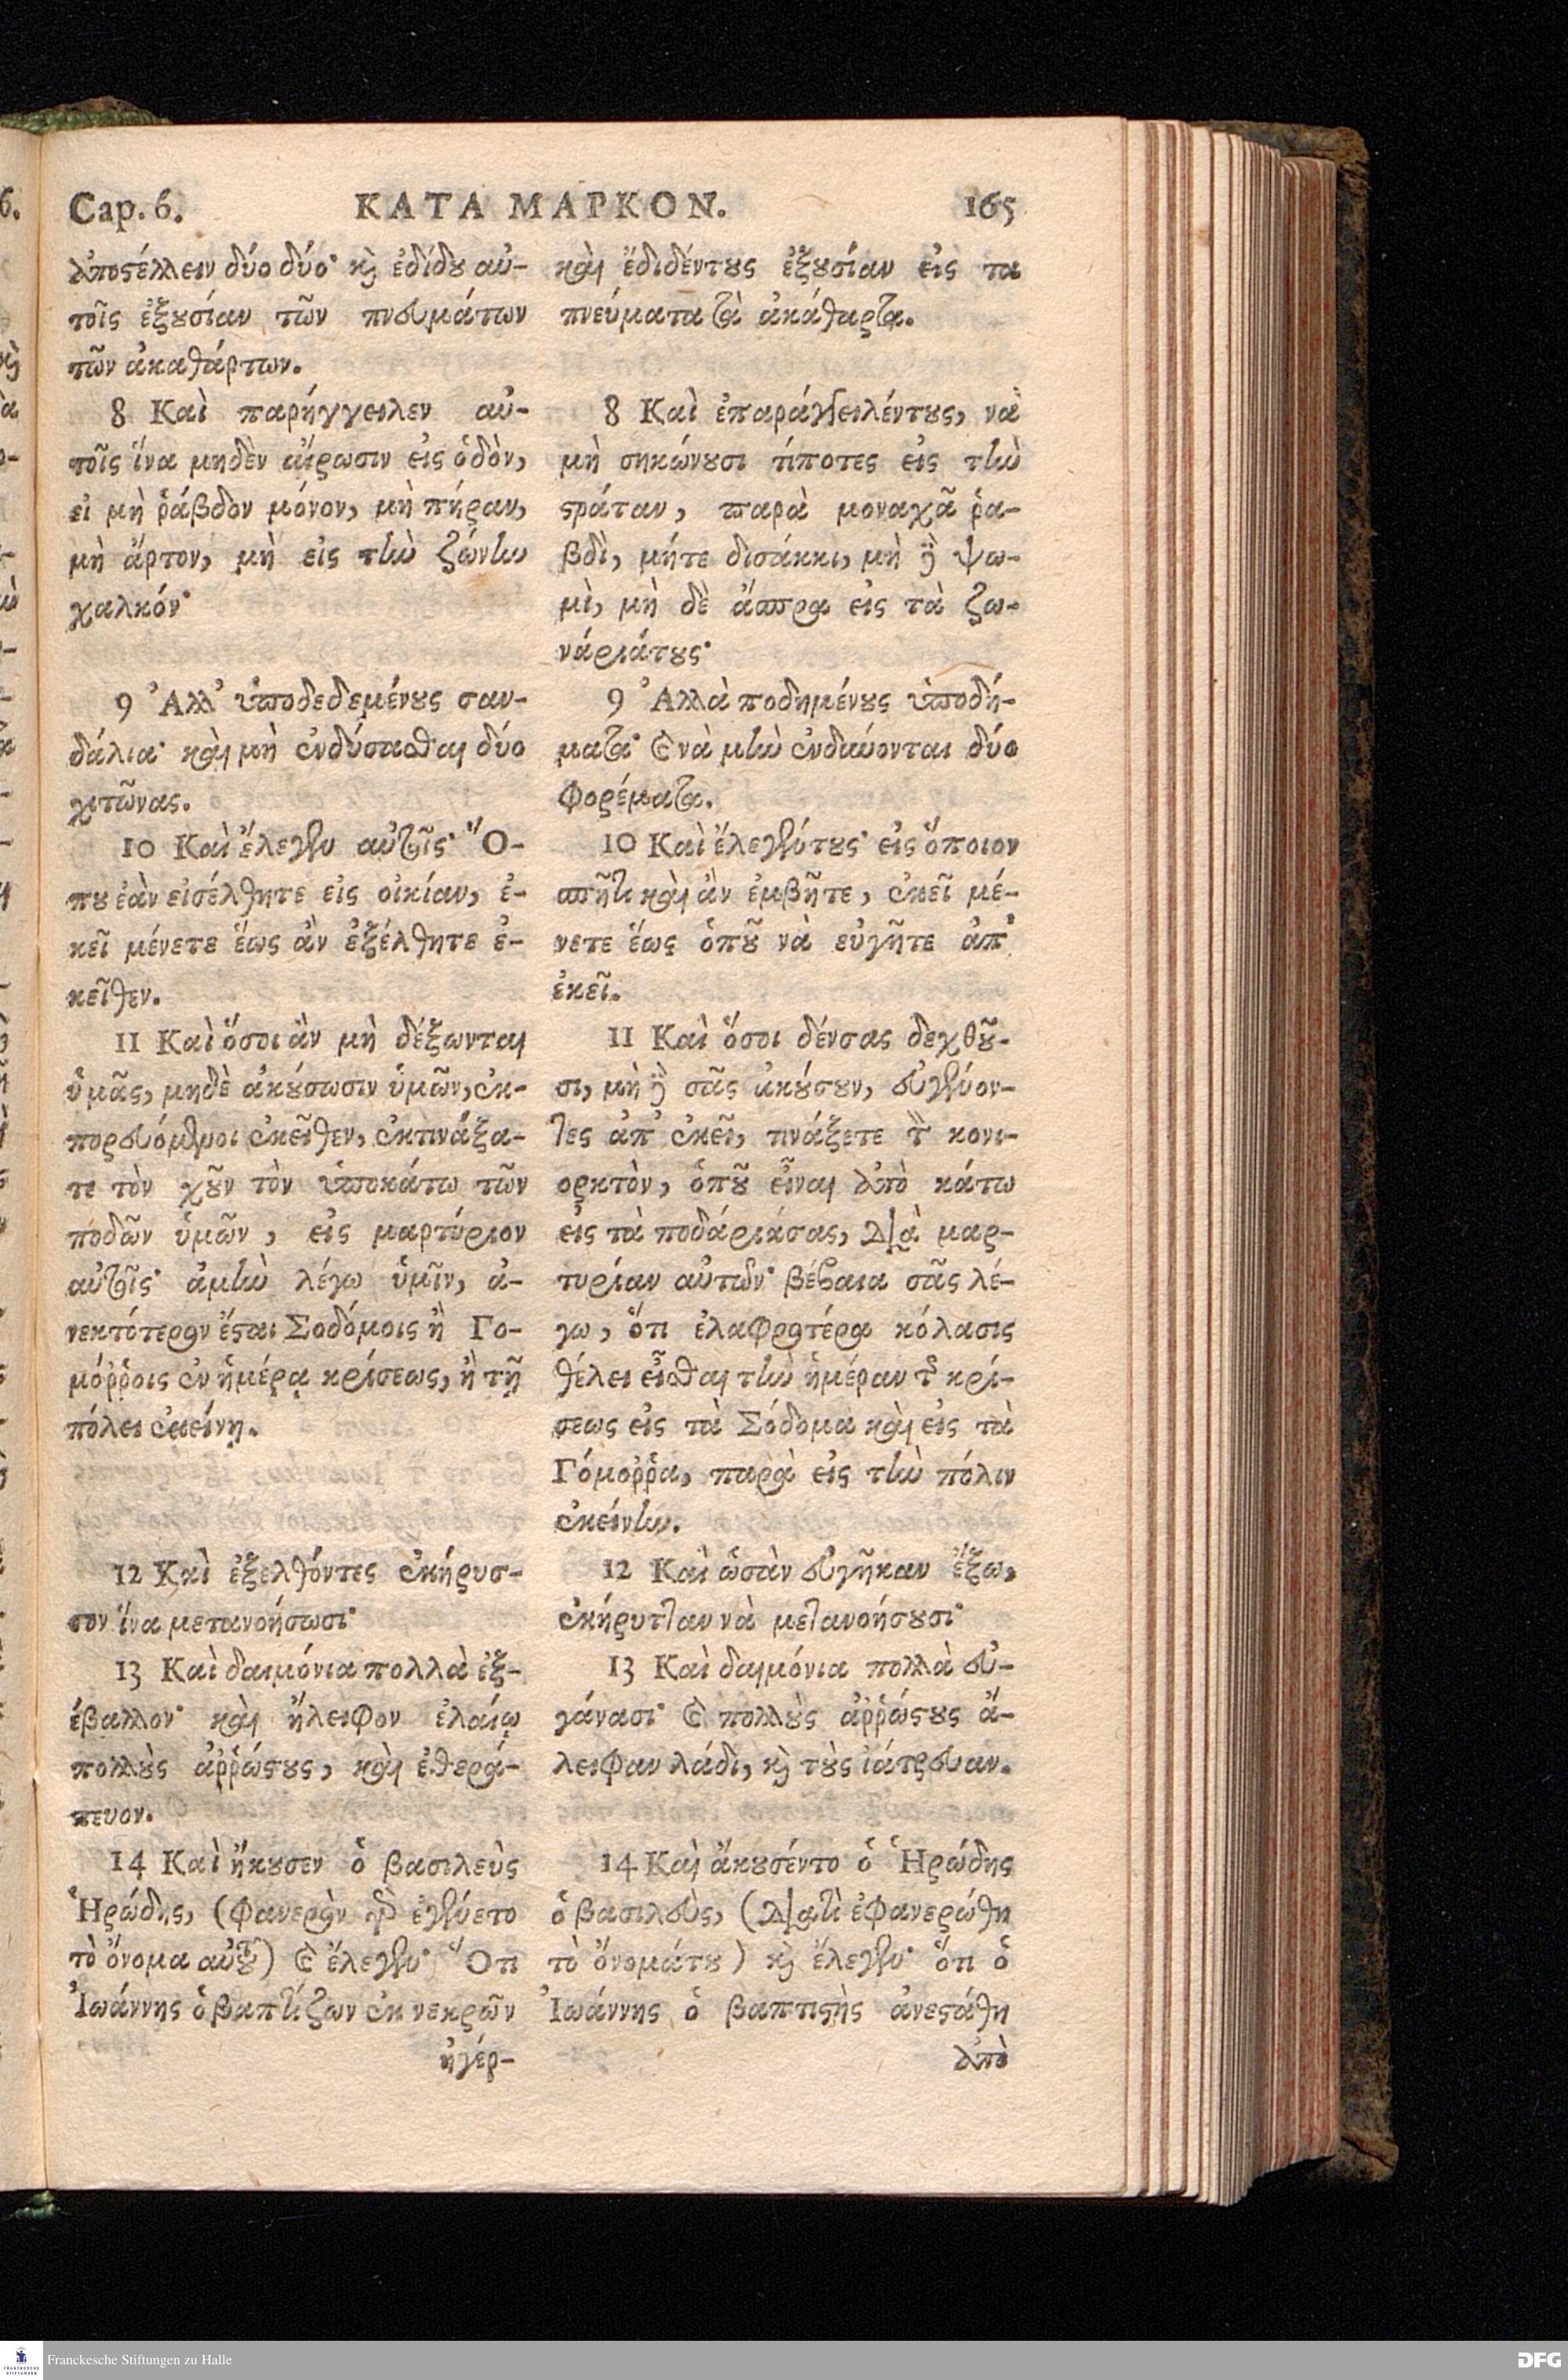 Cap. 6. ΚΑΤΑ ΜΑΡΚΟΝ. 165
ἀποστέλλειν δύο δύο· καὶ ἐδίδου αὐ-
τοῖς ἐξουσίαν τῶν πνευμάτων
τῶν ἀκαθάρτων.
8 Καὶ παρήγγειλεν αὐ-
τοῖς ἵνα μηδὲν αἴρωσιν εἰς ὁδὸν,
εἰ μὴ ῥάβδον μόνον, μὴ πήραν,
μὴ ἄρτον, μὴ εἰς τὴν ζώνην
χαλκόν·
9 Ἀλλ' ὑποδεδεμένους σαν-
δάλια· καὶ μὴ ἐνδύσασθαι δύο
χιτῶνας.
10 Καὶ ἔλεγεν αὐτοῖς· Ὅ-
που ἐὰν εἰσέλθητε εἰς οἰκίαν, ἐ-
κεῖ μένετε ἕως ἂν ἐξέλθητε ἐ-
κεῖθεν.
11 Καὶ ὅσοι ἂν μὴ δέξωνται
ὑμᾶς, μηδὲ ἀκούσωσιν ὑμῶν, ἐκ-
πορευόμενοι ἐκεῖθεν, ἐκτινάξα-
τε τὸν χοῦν τὸν ὑποκάτω τῶν
ποδῶν ὑμῶν, εἰς μαρτύριον
αὐτοῖς· ἀμὴν λέγω ὑμῖν, ἀ-
νεκτότερον ἔσται Σοδόμοις ἢ Γο-
μόῤῥοις ἐν ἡμέρᾳ κρίσεως, ἢ τῇ
πόλει ἐκείνῃ.
12 Καὶ ἐξελθόντες ἐκήρυσ-
σον ἵνα μετανοήσωσι·
13 Καὶ δαιμόνια πολλὰ ἐξ-
έβαλλον· καὶ ἤλειφον ἐλαίῳ
πολλοὺς ἀῤῥώστους, καὶ ἐθερά-
πευον.
14 Καὶ ἤκουσεν ὁ βασιλεὺς
Ἡρώδης, (φανερὸν γὰρ ἐγένετο
τὸ ὄνομα αὐτοῦ) καὶ ἔλεγεν· Ὅτι
Ἰωάννης ὁ βαπτίζων ἐκ νεκρῶν
ἠγέρ-
καὶ ἔδιδέντους ἐξουσίαν εἰς τα
πνεύματα τὰ ἀκάθαρτα.
8 Καὶ ἐπαράγγειλέντους, νὰ
μὴ σηκώνουσι τίποτες εἰς τὴν
στράταν, παρὰ μοναχᾶ ῥα-
βδὶ, μήτε δισάκκι, μὴ δὲ ψω-
μὶ, μὴ δὲ ἄσπρα εἰς τὰ ζω-
νάριάτους·
9 Ἀλλὰ ποδημένους ὑποδή-
ματα· καὶ νὰ μὴν ἐνδαύονται δύο
φορέματα.
10 Καὶ ἔλεγέντους· εἰς ὅποιον
σπῆτι καὶ ἂν ἐμβῆτε, ἐκεῖ μέ-
νετε ἕως ὁποῦ νὰ εὐγῆτε ἀπ'
ἐκεῖ.
11 Καὶ ὅσοι δένσας δεχθοῦ-
σι, μὴ δὲ σᾶς ἀκούσουν, εὐγένον-
τες ἀπ' ἐκεῖ, τινάξετε τὸν κονι-
ορκτὸν, ὁποῦ εἶναι ἀπὸ κάτω
εἰς τὰ ποδάριάσας, διὰ μαρ-
τυρίαν αὐτῶν· βέβαια σᾶς λέ-
γω, ὅτι ἐλαφροτέρα κόλασις
θέλει εἶσθαι τὴν ἡμέραν τῆς κρί-
σεως εἰς τὰ Σόδομα καὶ εἰς τὰ
Γόμοῤῥα, παρὰ εἰς τὴν πόλιν
ἐκείνην.
12 Καὶ ὡσὰν εὐγῆκαν ἔξω,
ἐκήρυτταν νὰ μετανοήσουσι·
13 Καὶ δαιμόνια πολλὰ εὐ-
γάνασι· καὶ πολλοὺς ἀῤῥώστους ἄ-
λειφαν λάδι, καὶ τοὺς ἰάτρευαν.
14 Καὶ ἄκουσέντο ὁ Ἡρώδης
ὁ βασιλεὺς, (διατὶ ἐφανερώθη
τὸ ὄνομάτου) καὶ ἔλεγεν· ὅτι ὁ
Ἰωάννης ὁ βαπτιστὴς ἀνεστάθη
ἀπὸ
Franckesche Stiftungen zu Halle
DFG